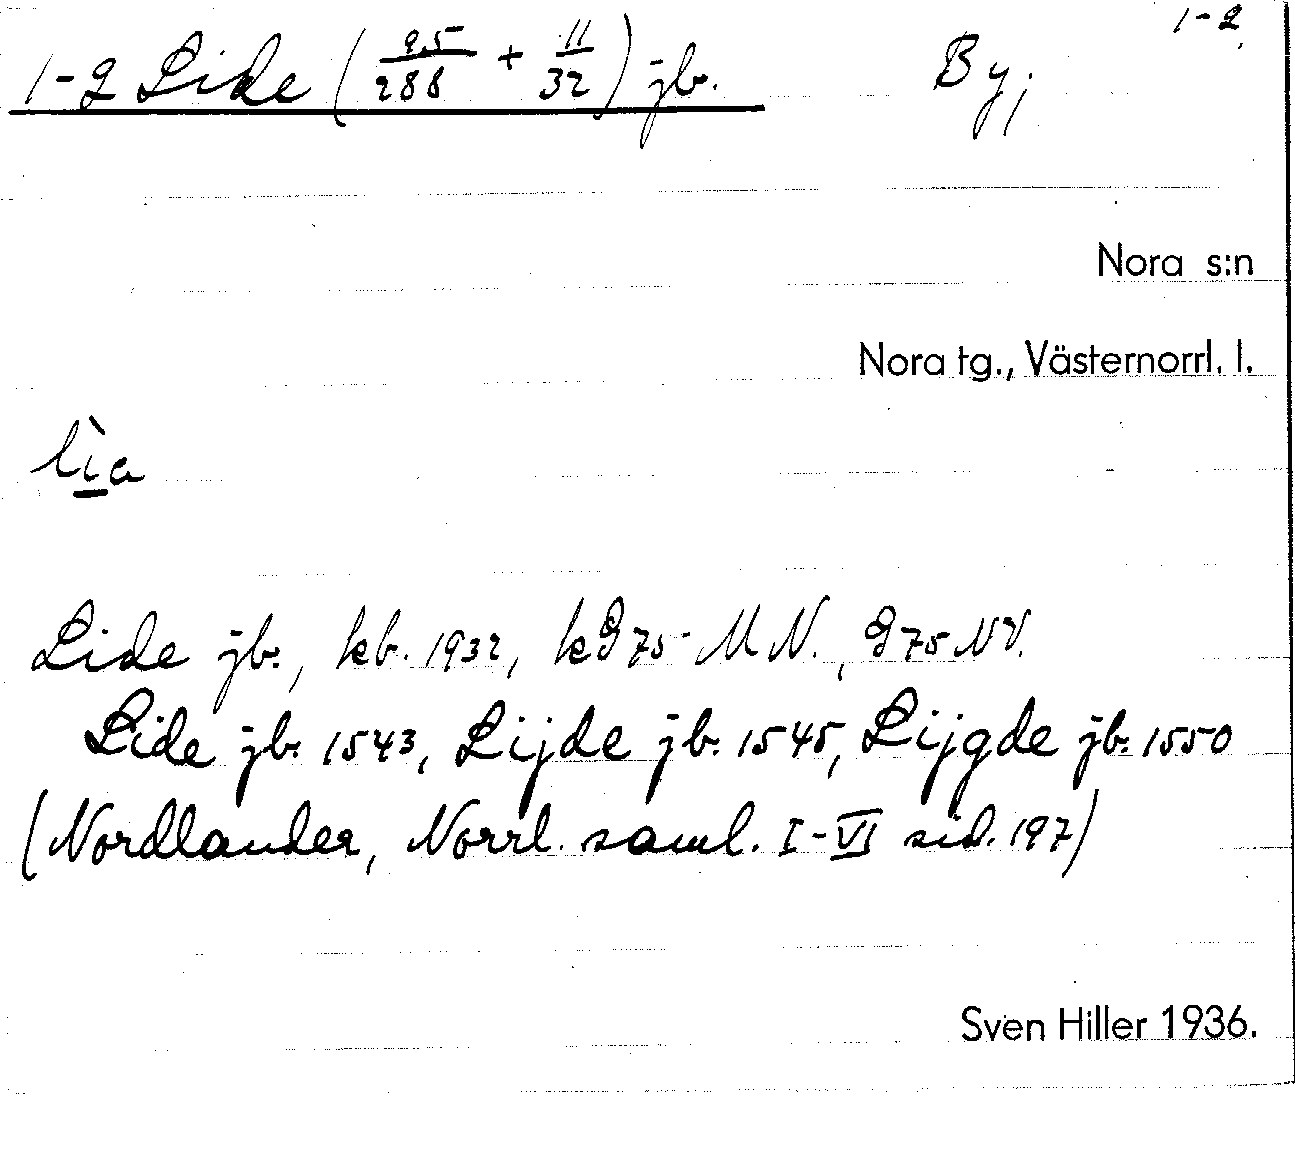 1-2
1-2 Lide (95/288 + 11/32) jb. By;
Nora s:n
Nora tg., Västernorrl. l.
lìa
Lide jb., kb. 1932, kG 75 MN., G 75 NV.
Lide jb. 1543, Lijde jb. 1545, Lijgde jb. 1550
(Nordlander, Norrl. saml. I-VI sid. 197)
Sven Hiller 1936.